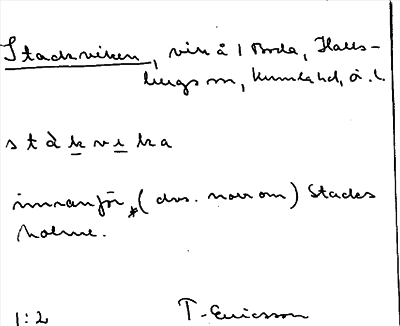 Stackviken, vik å 1 Boda, Halls-
bergs sn, Kumla hd, ö. l.
s t à k v i k a
innanför (dvs. norr om) Stacks
holme.
1:2 T. Ericsson